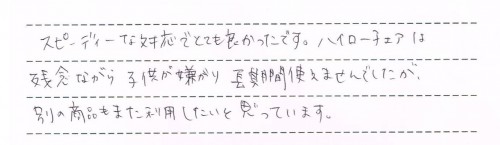 スピーディーな対応でとても良かったです。ハイローチェアは
残念ながら子供が嫌がり長期間使えませんでしたが、
別の商品もまた利用したいと思っています。